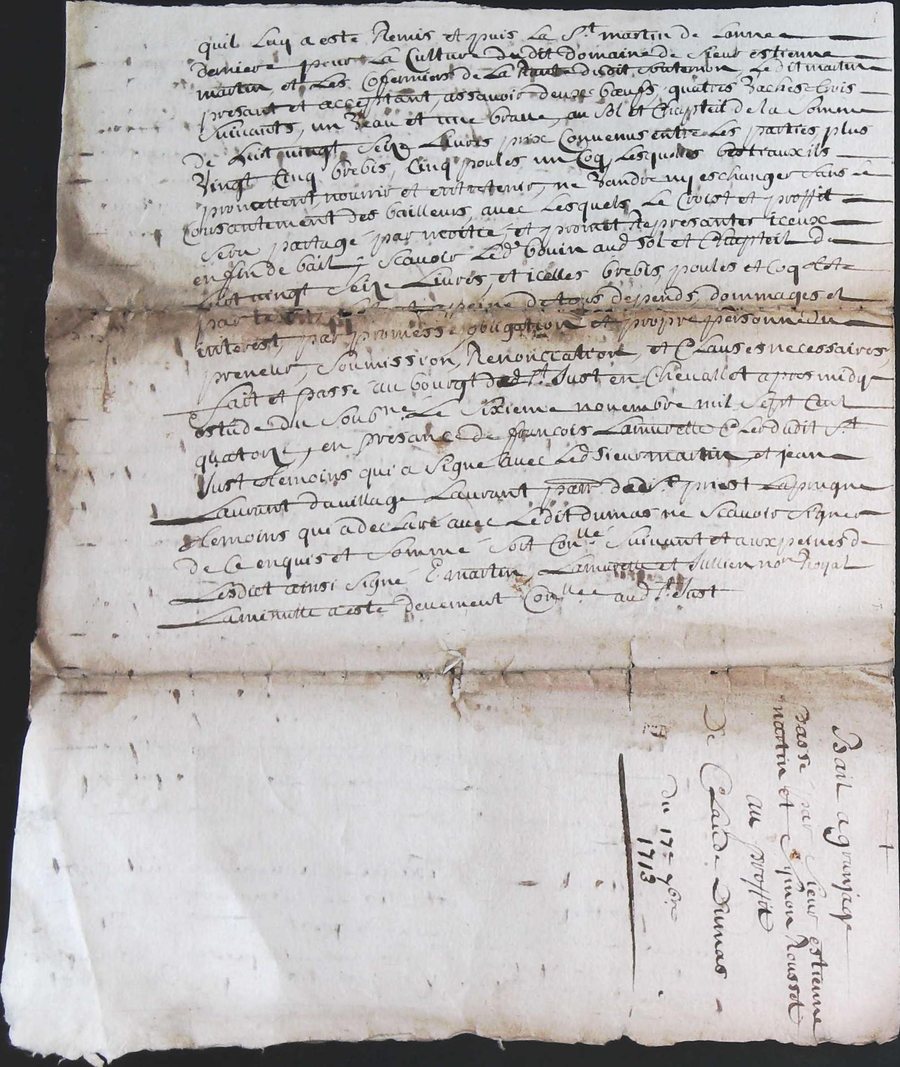 quil luy a esté Remis et puis la St martin de Lannee
derniere pour La Culture dudit domaine de sieur estienne
martin et Les Cofermiers de La Rante dudit souternon, Ledit martin
presant et acceptant, assavoir deux bœufs quatre Vaches
suivants, un Veau et une brave, au sol et Chapteil de la somme
de huit vingt seize Livres prix Convenus entre Les parties plus
Vingt Cinq brebis, Cinq poules un Coq, Lesquels bestiaux ils
promettent nourrir et entretenir, ne Vandre ny eschanger sans le
Consantement des bailleurs, avec Lesquels Le Croist et proffit
sera partagé par moitié, et promet Represanter iceux
en fin de bail, scavoir Led bovin aud sol et Chapteil de
huit vingt seize Livres, et icelles brebis, poules et Coq
peine de tous depends, dommages et
interest, par promesse, obligation et propre personne du
preneur, soumission, Renonciation, et Clauses necessaires
fait et passé au bourgt dedt St Just en Chevallet apres midy
estude du soubné Le sixieme novembre mil sept Cent
quatorze, en presance de françois Lamurette Clerc dudit St
Just temoins qui a signé avec Led sieur martin, et jean
Laurant du village Laurant parr dedit priest Laprugne
temoins qui a declaré avec Ledit dumas ne scavoir signer
de Ce enquis et sommé soit Conllé suivant et aux peines de
Lesdict ainsi signé E martin, Lamurette et Jullien nore Royal
La minutte a esté devement Conllee aud St Just
Bail a granjage
Passé par sieur estienne
martin et Symon Rousset
au proffit
De Claude Dumas
du 17e 7bre
1713